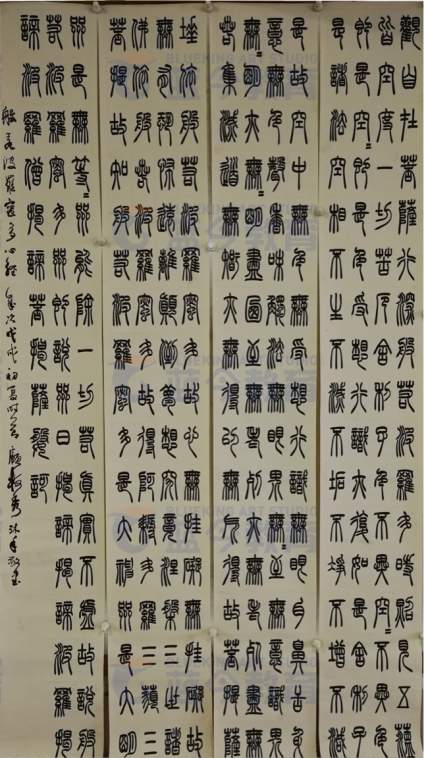 觀自在菩薩行深般若波羅多時照見五蘊
皆空度一切苦厄舍利子色不異空=不異色
即是空=即是色受想行識亦復如是舍利子
是諸法空相不生不滅不垢不淨不增不減
是故空中無色無受想行識無眼耳鼻舌身
意無=色聲香味觸法無眼界乃至無意識界
無=明亦無明盡乃至無=老死亦無老死盡
苦集滅道無智亦無得以無所得故菩提薩
埵依般若波羅蜜多故心無罣礙無罣礙故
無有恐怖遠離顛倒夢想究竟涅槃三世諸
佛依般若波羅蜜多故得阿耨多羅三藐三
菩提故知般若波羅蜜多是大神咒是大明
咒是無等=咒能除一切苦真實不虛故說般
若波羅蜜多咒即說咒曰揭諦揭諦波羅揭
諦波羅僧揭諦菩提薩婆訶
般若波羅蜜多心經 歲次戊戌初夏時 沐手敬書